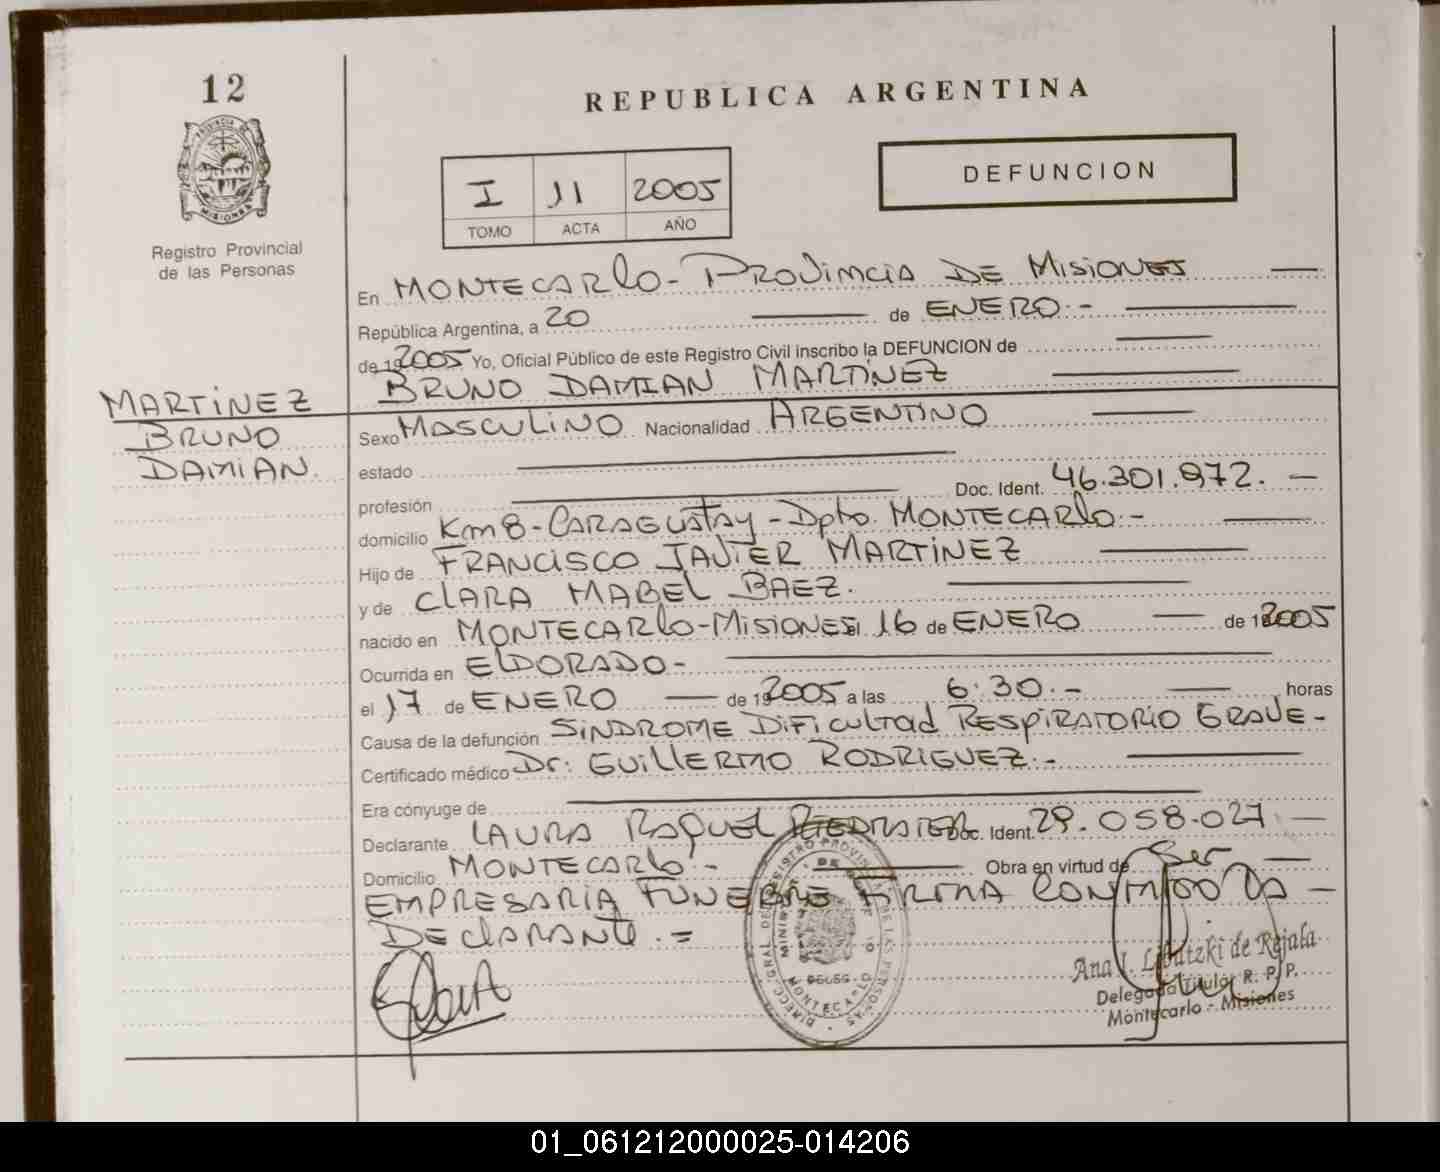 12
REPUBLICA ARGENTINA
PROVINCIA DE
MISIONES
Registro Provincial
de las Personas
I 11 2005
TOMO ACTA AÑO
DEFUNCION
En MONTECARLO - PROVINCIA DE MISIONES
República Argentina, a 20 de ENERO.-
de 19 2005 Yo, Oficial Público de este Registro Civil inscribo la DEFUNCION de
BRUNO DAMIAN MARTINEZ
MARTINEZ
BRUNO
DAMIAN.
Sexo MASCULINO Nacionalidad ARGENTINO
estado
profesión Doc. Ident. 46.301.972.-
domicilio Km 8 - CARAGUATAY - Dpto. MONTECARLO -
Hijo de FRANCISCO JAVIER MARTINEZ
y de CLARA MABEL BAEZ.
nacido en MONTECARLO - MISIONES el 16 de ENERO de 19 2005
Ocurrida en ELDORADO -
el 17 de ENERO de 19 2005 a las 6:30.- horas
Causa de la defunción SINDROME DIFICULTAD RESPIRATORIO GRAVE -
Certificado médico Dr: GUILLERMO RODRIGUEZ.-
Era cónyuge de
Declarante LAURA RAQUEL Doc. Ident. 29.058.027.-
Domicilio MONTECARLO - Obra en virtud de Ser
EMPRESARIA FUNEBRE FIRMA CONMIGO LA -
DECLARANTE.=
Ana I. de Rejala
Delegada Titular R. P. P.
Montecarlo - Misiones
01_061212000025-014206